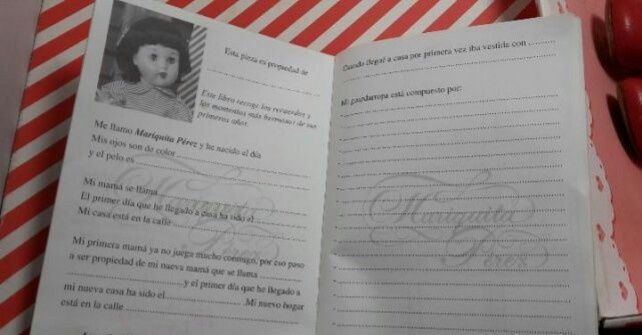 Esta pieza es propiedad de
Este libro recoge los recuerdos y
los momentos más hermosos de sus
primeros años.
Me llamo Mariquita Pérez y he nacido el día
Mis ojos son de color
y el pelo es
Mi mamá se llama
El primer día que he llegado a casa ha sido el
Mi casa está en la calle
Mi primera mamá ya no juega mucho conmigo, por eso paso
a ser propiedad de mi nueva mamá que se llama
y el primer día que he llegado a
mi nueva casa ha sido el . Mi nuevo hogar
está en la calle
Cuando llegué a casa por primera vez iba vestida con
Mi guardarropa está compuesto por:
Mariquita
Pérez